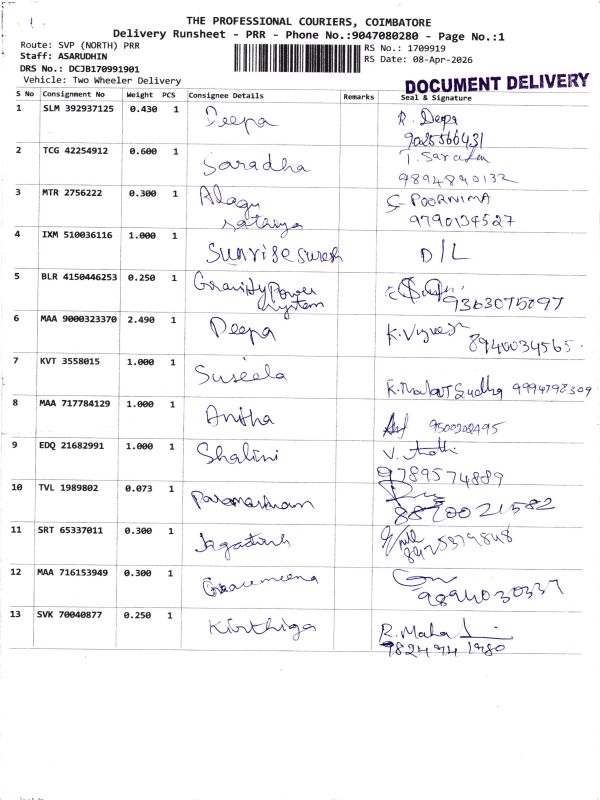 THE PROFESSIONAL COURIERS, COIMBATORE
Delivery Runsheet - PRR - Phone No.:9047080280 - Page No.:1
Route: SVP (NORTH) PRR
RS No.: 1709919
Staff: ASARUDHIN
RS Date: 08-Apr-2026
DRS No.: DCJB170991901
Vehicle: Two Wheeler Delivery
DOCUMENT DELIVERY
S No Consignment No Weight PCS Consignee Details Remarks Seal & Signature
1 SLM 392937125 0.430 1 Deepa R. Deepa
9025566431
2 TCG 42254912 0.600 1 Saradha T. Saradha
9894840132
3 MTR 2756222 0.300 1 Alagu POORNIMA
sathiya 9790134527
4 IXM 510036116 1.000 1 Sunrise suresh D/L
5 BLR 4150446253 0.250 1 Gravity Power
system 9363075097
6 MAA 9000323370 2.490 1 Deepa K. Vignesh
8940034565.
7 KVT 3558015 1.000 1 Suseela Sudha 9994798309
8 MAA 717784129 1.000 1 Anitha 9500308495
9 EDQ 21682991 1.000 1 Shalini V.
9789574889
10 TVL 1989802 0.073 1
8870021582
11 SRT 65337011 0.300 1 Jagadish
12 MAA 716153949 0.300 1
9894030337
13 SVK 70040877 0.250 1 Kirthiga R. Maha